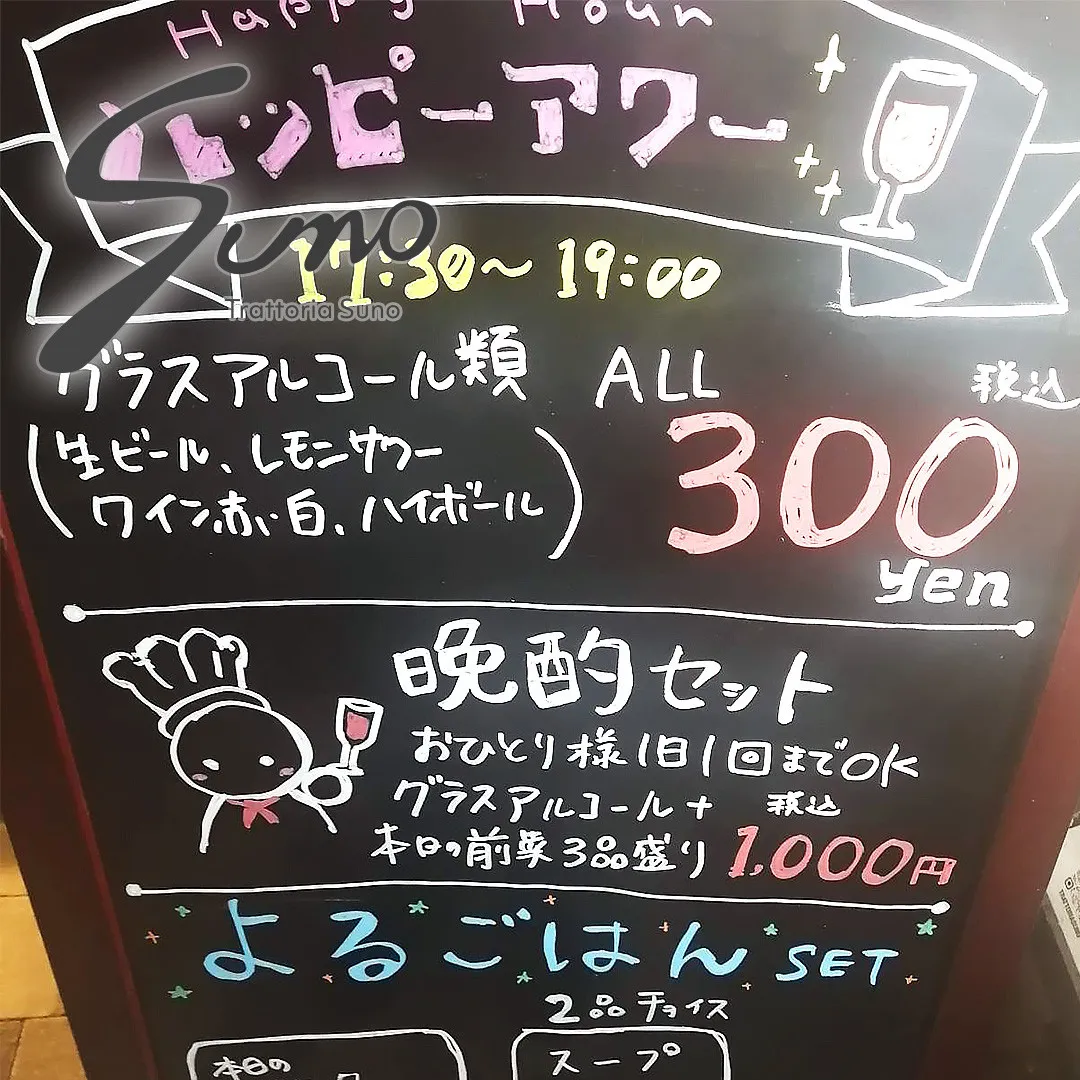 Happy Hour
ハッピーアワー
Suno
Trattoria Suno
17:30〜19:00
グラスアルコール類 ALL 税込
(生ビール、レモンサワー
ワイン赤・白、ハイボール)
300
yen
晩酌セット
おひとり様1日1回までOK
グラスアルコール+ 税込
本日の前菜3品盛り 1,000円
よるごはん SET
2品チョイス
本日の
スープ